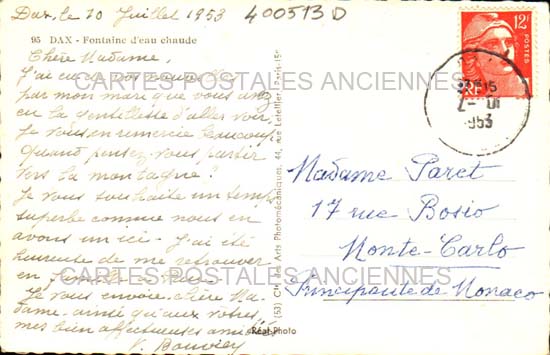 Dax, le 10 Juillet 1953
400513D
95 DAX - Fontaine d'eau chaude
Chère Madame,
J'ai eu de vos nouvelles
par mon mari que vous avez
eu la gentillesse d'aller voir.
Je vous en remercie beaucoup.
Quand pensez-vous partir
vers la montagne?
Je vous souhaite un temps
superbe comme nous en
avons un ici - J'ai été
heureuse de me retrouver
en famille à
Je vous envoie, chère Ma-
dame - ainsi qu'aux vôtres,
mes bien affectueuses amitiés
V. Bouvier
Réal-Photo
(53) Cie des Arts Photomécaniques, 44, rue Letellier - Paris-15e
12F
POSTES
RF
1953
Madame Paret
17 rue Bosio
Monte-Carlo
Principauté de Monaco
CARTES POSTALES ANCIENNES
CARTES POSTALES ANCIENNES